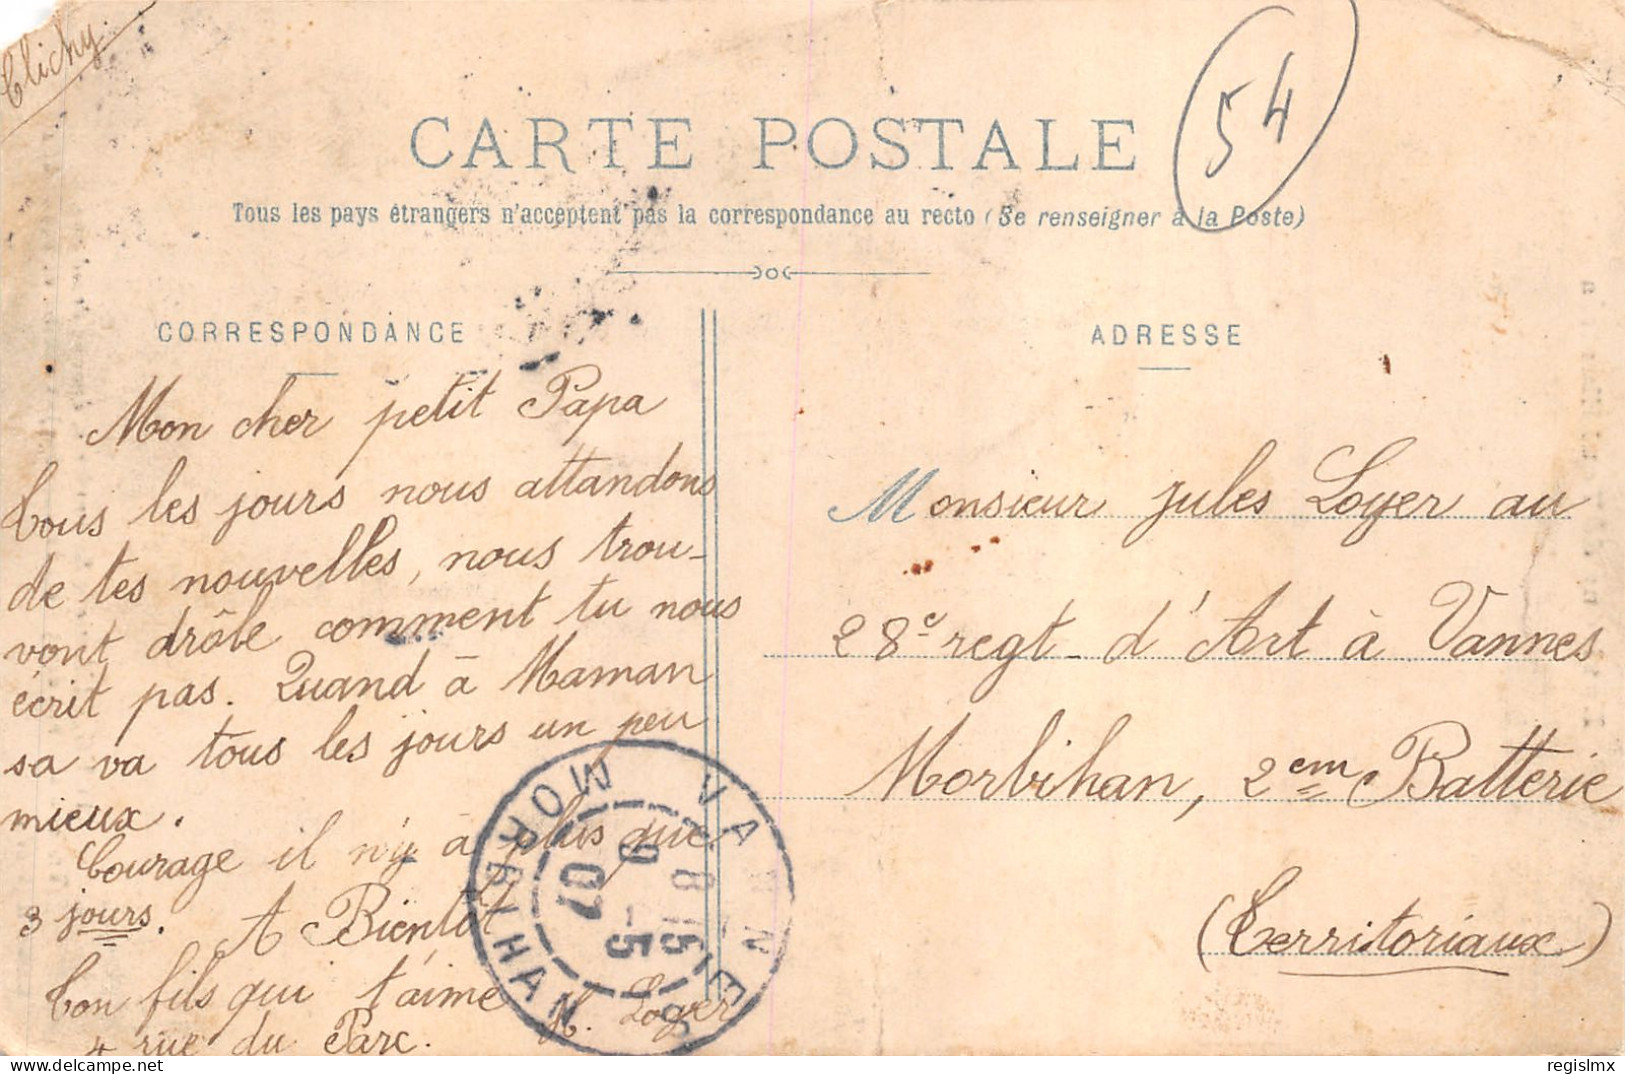 Clichy
54
CARTE POSTALE
Tous les pays étrangers n'acceptent pas la correspondance au recto (Se renseigner à la Poste)
CORRESPONDANCE
Mon cher petit Papa
Tous les jours nous attandons
de tes nouvelles, nous trou-
vont drôle comment tu nous
écrit pas. Quand à Maman
sa va tous les jours un peu
mieux.
Courage il n'y à plus que
3 jours. A Bientôt
Ton fils qui t'aime H. Loyer
4 rue du Parc.
ADRESSE
Monsieur Jules Loyer au
28e regt d'Art à Vannes
Morbihan, 2em Batterie
(Territoriaux)
VANNES
MORBIHAN
8 15
9 -5
07
© regislmx